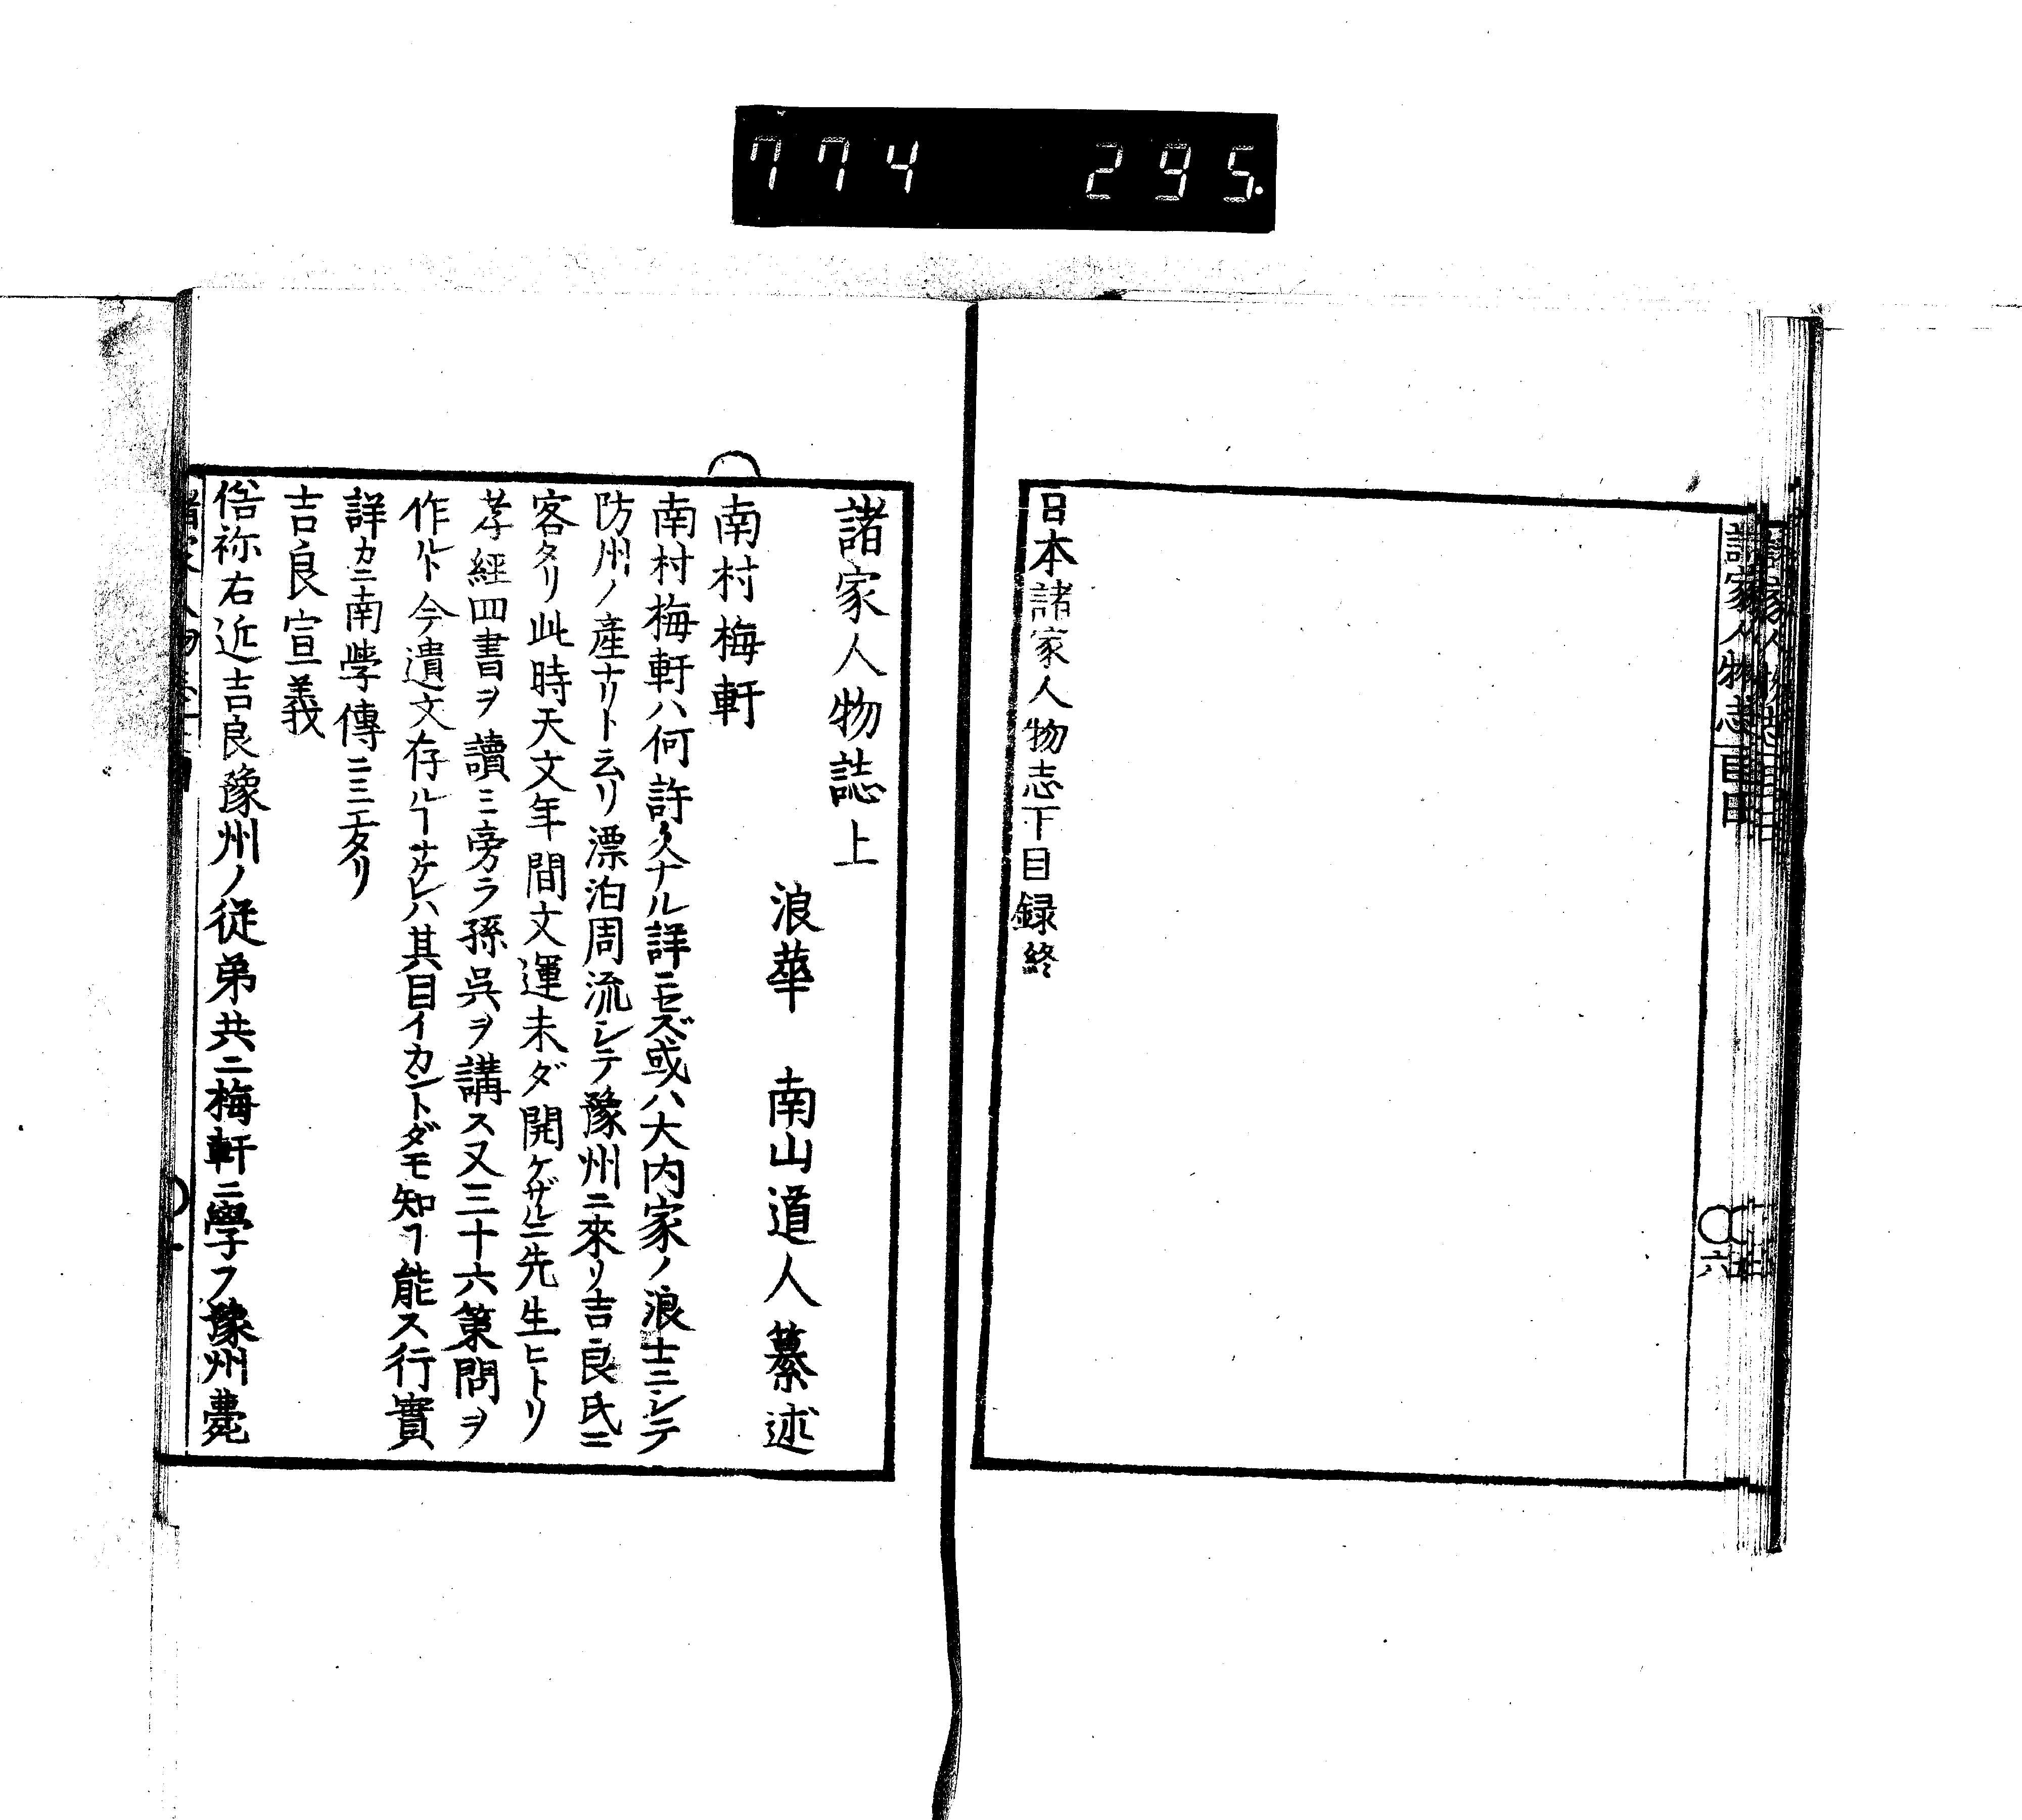 774 295.
諸家人物志 目 六
日本諸家人物志下目録終
諸家人物誌上
浪華 南山道人纂述
南村梅軒
南村梅軒ハ何許ノ人ナル詳ニセズ或ハ大内家ノ浪士ニシテ
防州ノ産ナリト云リ漂泊周流シテ豫州ニ來リ吉良氏ニ
客タリ此時天文年間文運未ダ開ケザルニ先生ヒトリ
孝經四書ヲ讀ミ旁ラ孫呉ヲ講ス又三十六策問ヲ
作ルト今遺文存ルヿナケレハ其目イカントダモ知ヿ能ス行實
詳カニ南學傳ニミエタリ
吉良宣義
俗称右近吉良豫州ノ從弟共ニ梅軒ニ學フ豫州薨